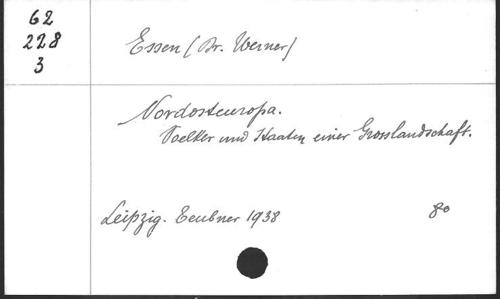 62
228
3
Essen (Dr. Werner)
Nordosteuropa.
Voelker und Staaten einer Grosslandschaft.
Leipzig. Teubner 1938
8o